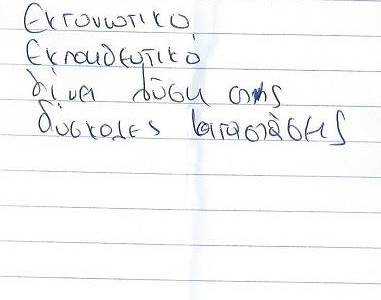 Εκτονωτικό,
Εκπαιδευτικό
δίνει λύση στις
δύσκολες καταστάσεις